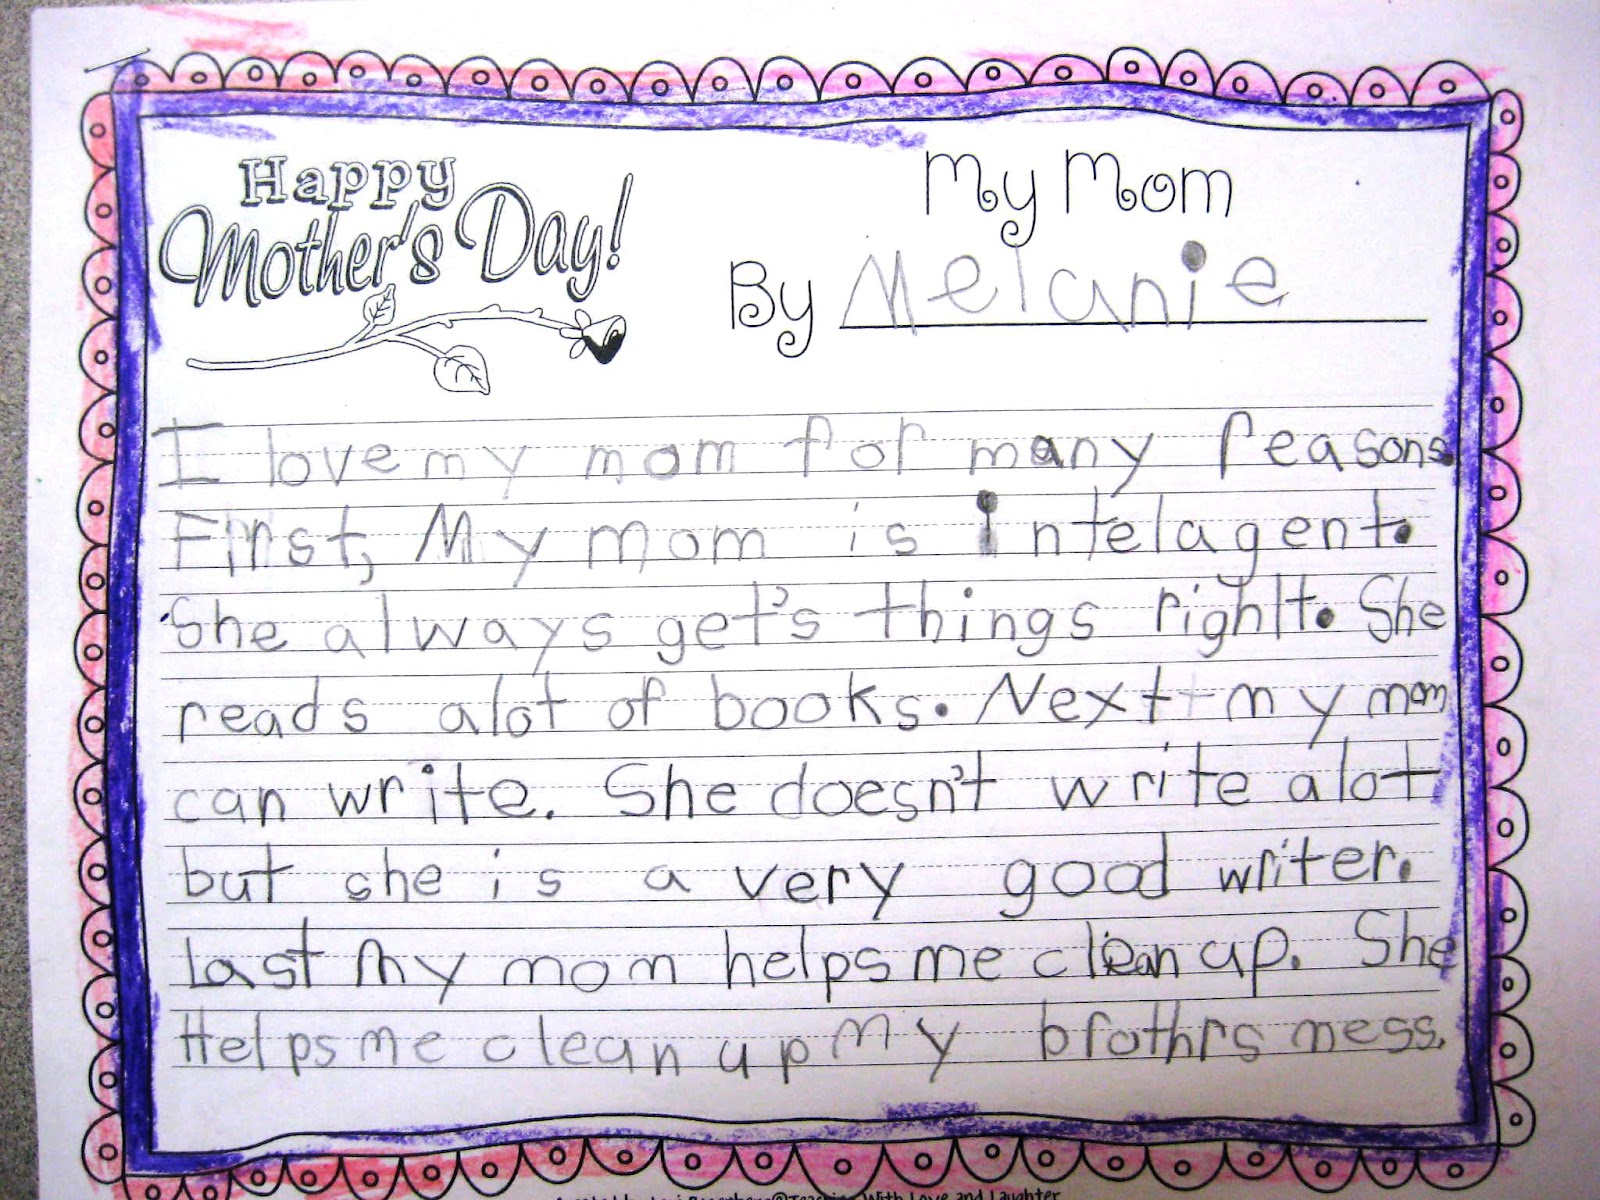 Happy
Mother's Day!
My Mom
By Melanie
I love my mom for many reasons.
First, My mom is intelagent.
She always get's things right. She
reads alot of books. Next my mom
can write. She doesn't write alot
but she is a very good writer.
Last My mom helps me clean up. She
Helps me clean up my brothrs mess.
With Love and Laughter